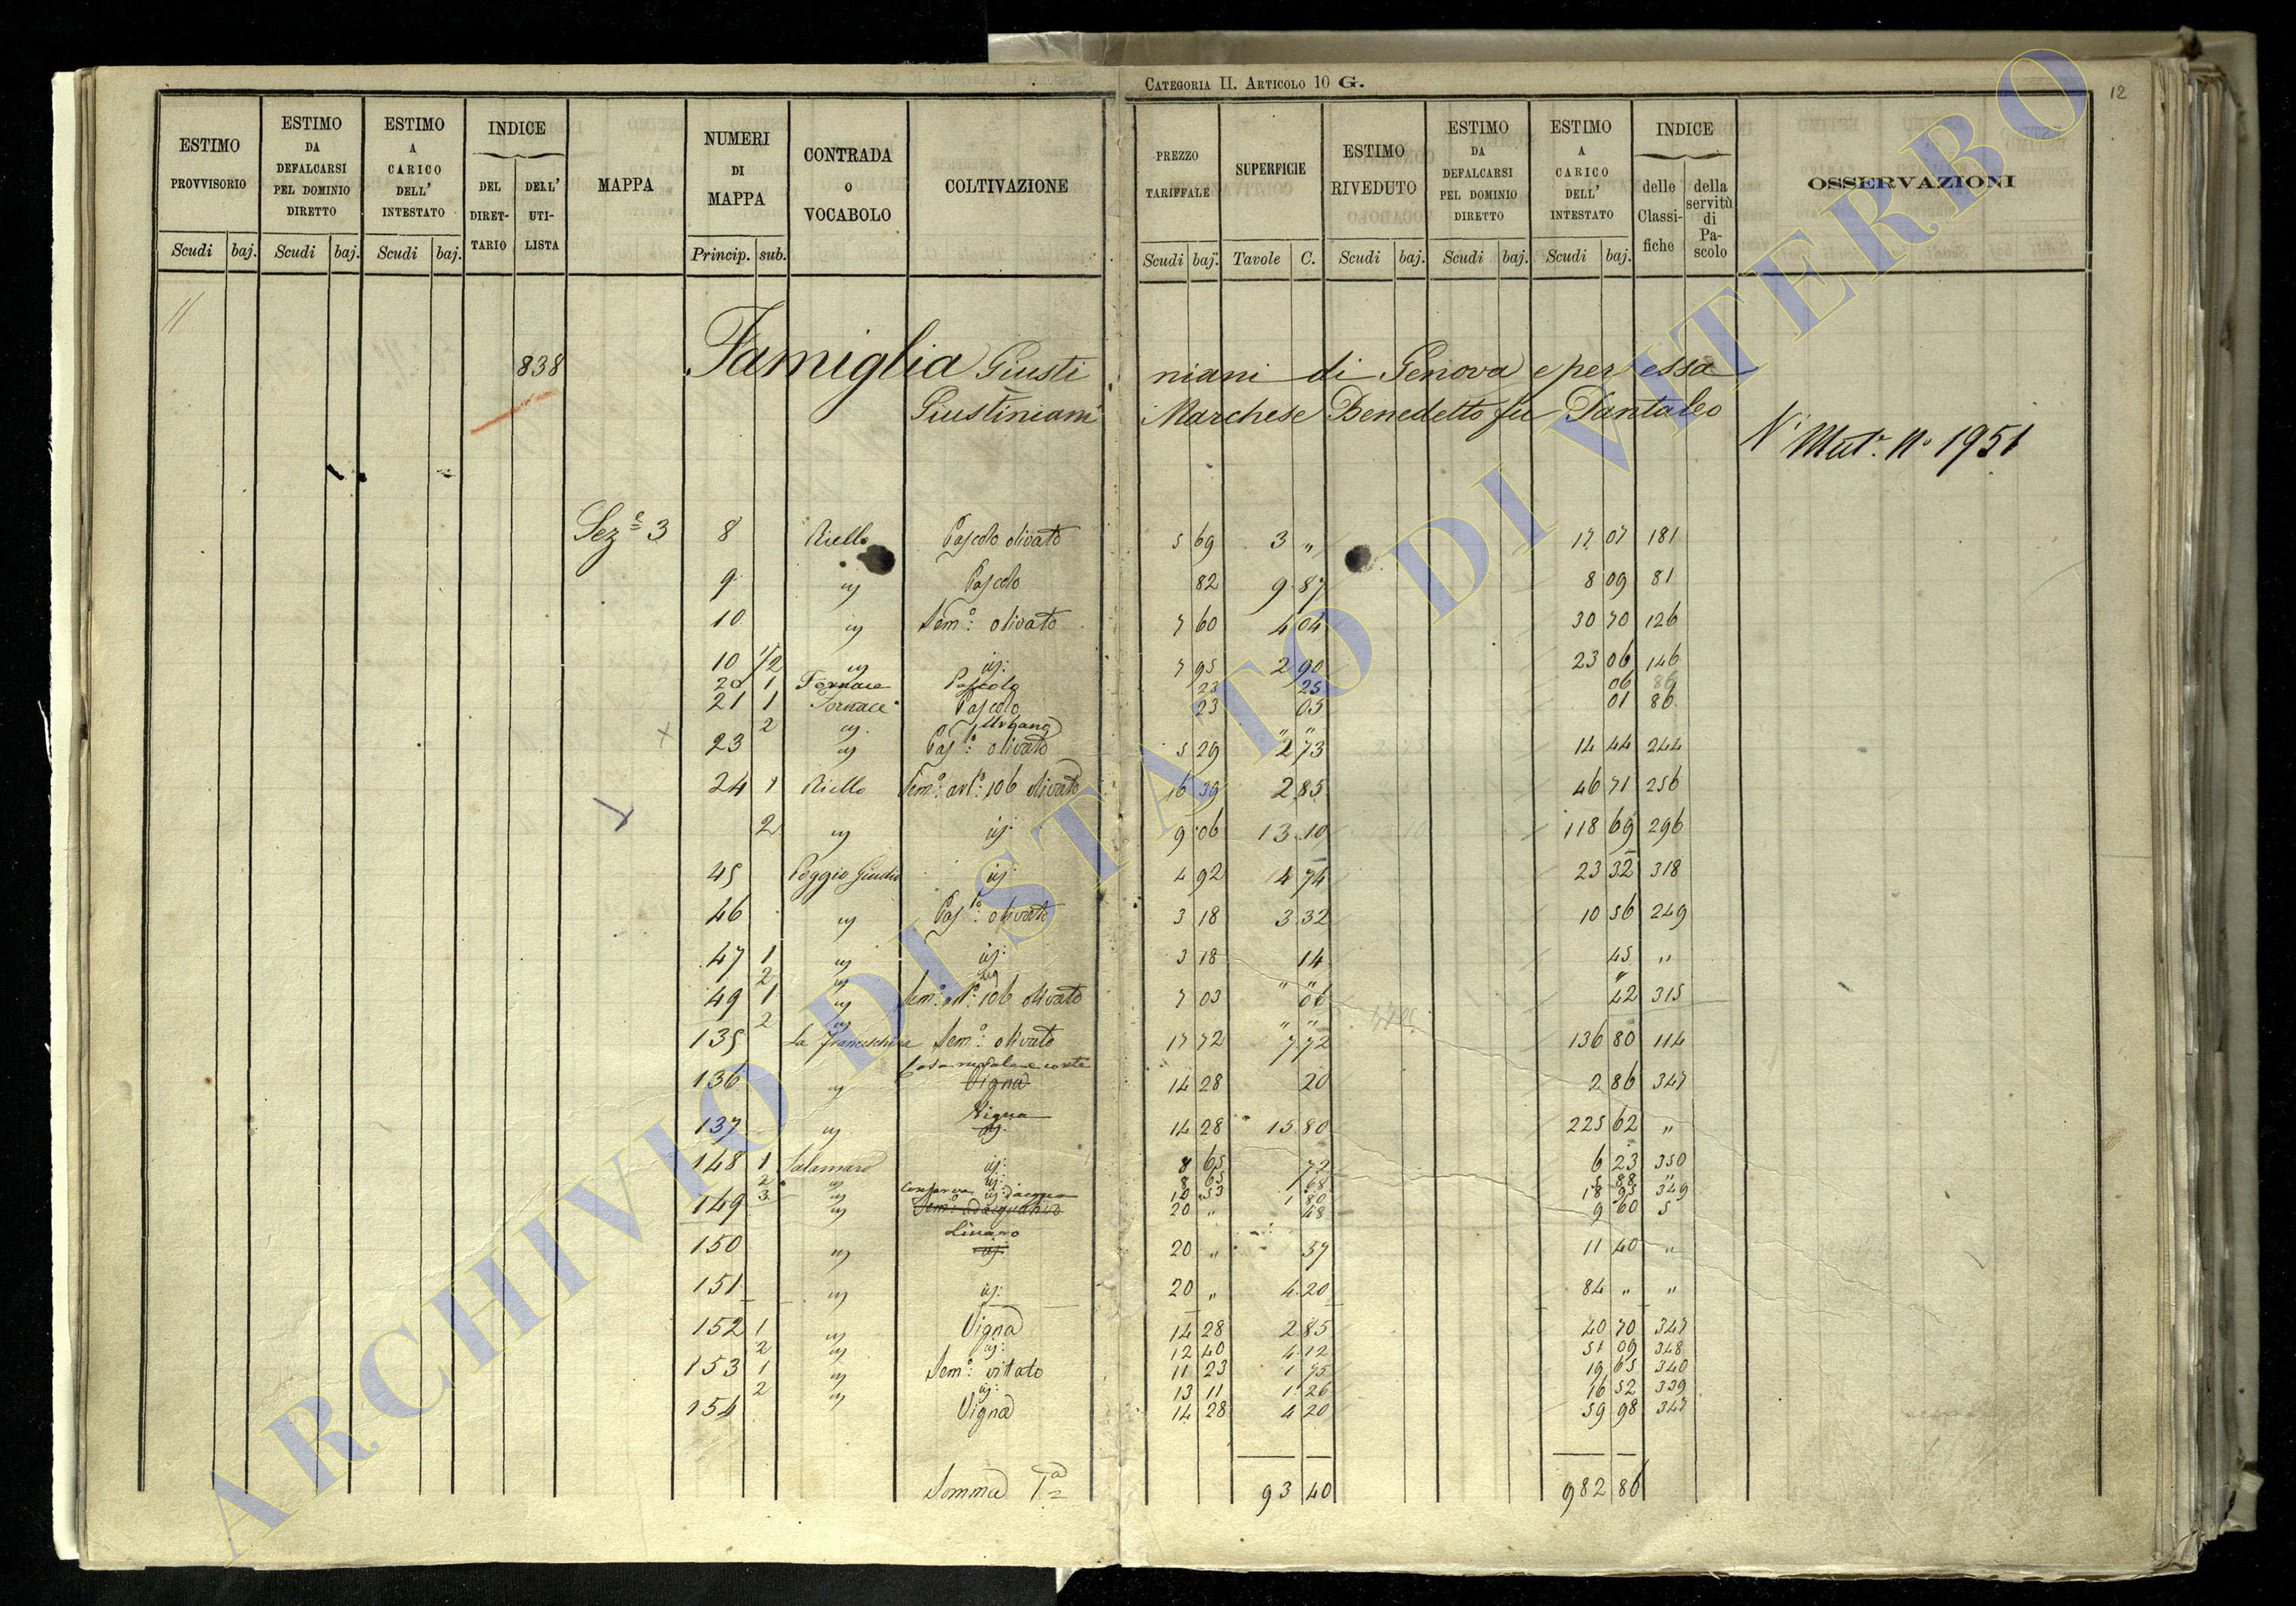 CATEGORIA II. ARTICOLO 10 G.
12
ESTIMO PROVVISORIO
ESTIMO DA DEFALCARSI PEL DOMINIO DIRETTO
ESTIMO A CARICO DELL' INTESTATO
INDICE
DEL DIRETTARIO
DELL' UTILISTA
MAPPA
NUMERI DI MAPPA
CONTRADA O VOCABOLO
COLTIVAZIONE
PREZZO TARIFFALE
SUPERFICIE
ESTIMO RIVEDUTO
ESTIMO DA DEFALCARSI PEL DOMINIO DIRETTO
ESTIMO A CARICO DELL' INTESTATO
INDICE
delle Classifiche
della servitù di Pascolo
OSSERVAZIONI
Scudi baj. Scudi baj. Scudi baj. Princip. sub. Scudi baj. Tavole C. Scudi baj. Scudi baj. Scudi baj.
838 Famiglia Giustiniani di Genova e per essa
Giustiniani Marchese Benedetto fu Pantaleo
Mut. N. 1951
Sez.e 3 8 Riello Pascolo olivato 5 69 3 " 17 07 181
9 " Pascolo 82 9 87 8 09 81
10 " Sem.o olivato 7 60 4 04 30 70 126
10 1/2 " id: 7 95 2 90 23 06 146
20 1 Fornace Pascolo 23 25 06 86
21 1 Fornace Pascolo 23 05 01 86
2 " Urbano " "
23 " Pas.lo olivato 5 29 2 73 14 44 244
24 1 Riello Sem.o arb.o 106 olivato 16 39 2 85 46 71 256
2 " id: 9 06 13 10 118 69 296
45 Poggio Giudio id: 4 92 4 74 23 32 318
46 " Pas.lo olivato 3 18 3 32 10 56 249
47 1 " id: 3 18 14 45 "
2 " " " "
49 1 " Sem.o arb.o 106 olivato 7 03 06 42 315
2 " " "
135 La Franceschina Sem.o olivato 17 72 7 72 136 80 114
136 " Casa rurale e corte Vigna 14 28 20 2 86 347
137 " Vigna id. 14 28 15 80 225 62 "
148 1 Salamaro id: 8 65 72 6 23 350
2 " id: 8 65 68 5 88 "
3 " id: 10 53 1 80 18 95 349
149 " Conserva d'acqua Sem.o adacquativo 20 " 48 9 60 5
150 " Linaro id: 20 " 57 11 40 "
151 " id: 20 " 4 20 84 " "
152 1 " Vigna 14 28 2 85 40 70 347
2 " id: 12 40 4 12 51 09 348
153 1 " Sem.o vitato 11 23 1 75 19 65 340
2 " id: 13 11 1 26 16 52 339
154 " Vigna 14 28 4 20 59 98 347
Somma 1a 93 40 982 86
ARCHIVIO DI STATO DI VITERBO